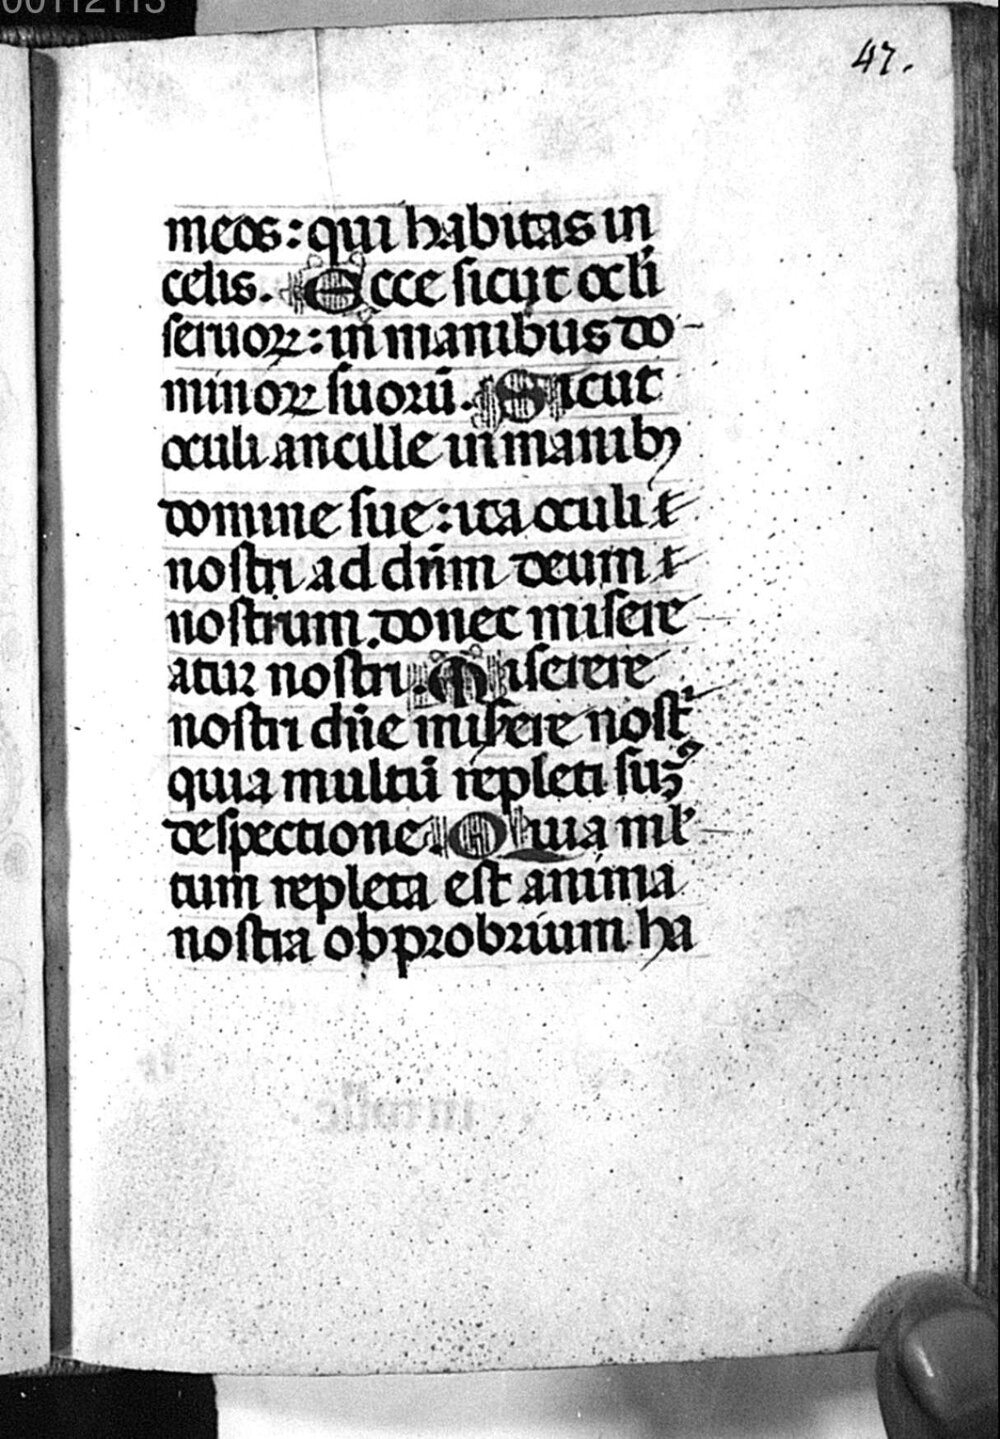 00112113
47.
meos: qui habitas in
celis. Ecce sicut ocłi
seruoꝝ: in manibus do-
minoꝝ suorū. Sicut
oculi ancille in manibꝫ
domine sue: ita oculi
nostri ad dn̄m deum
nostrum. donec misere
atur nostri. Miserere
nostri dn̄e misere nost̄
quia multū repleti sumꝰ
despectione. Quia ml̄
tum repleta est anima
nostra obprobrium ha